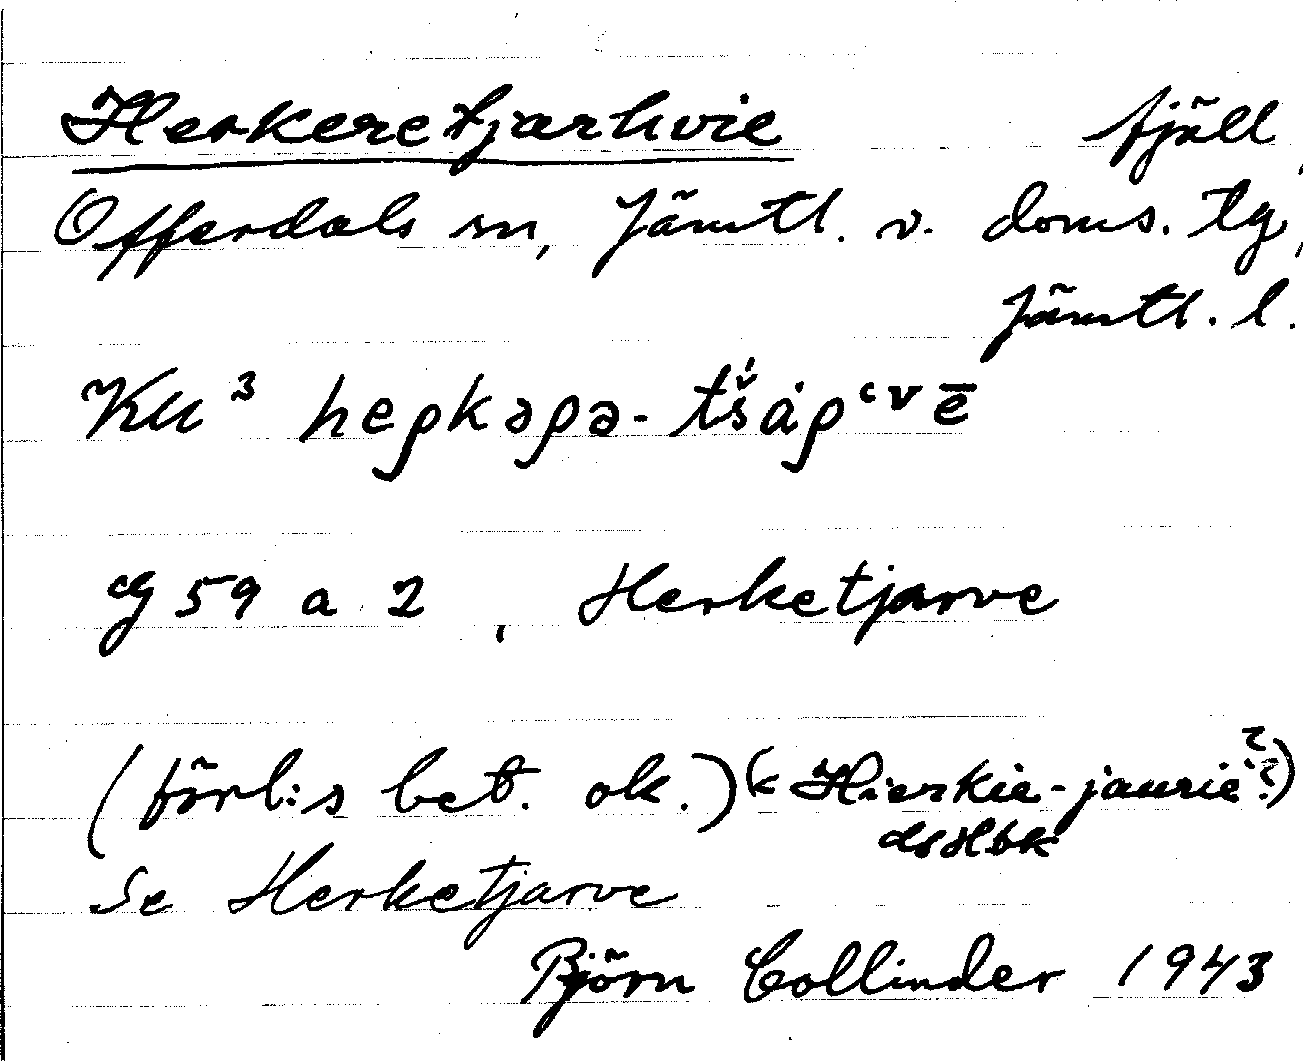 Herkeretjarhvie fjäll,
Offerdals sn, Jämtl. v. doms. tg,
Jämtl. l.
KU³ heρkəρə-tš́ȧρʿvē
G 59 a 2, Herketjarve
(förl:s bet. ok.) (< Hierkie-jaurie??)
Se Herketjarve
Björn Collinder 1943